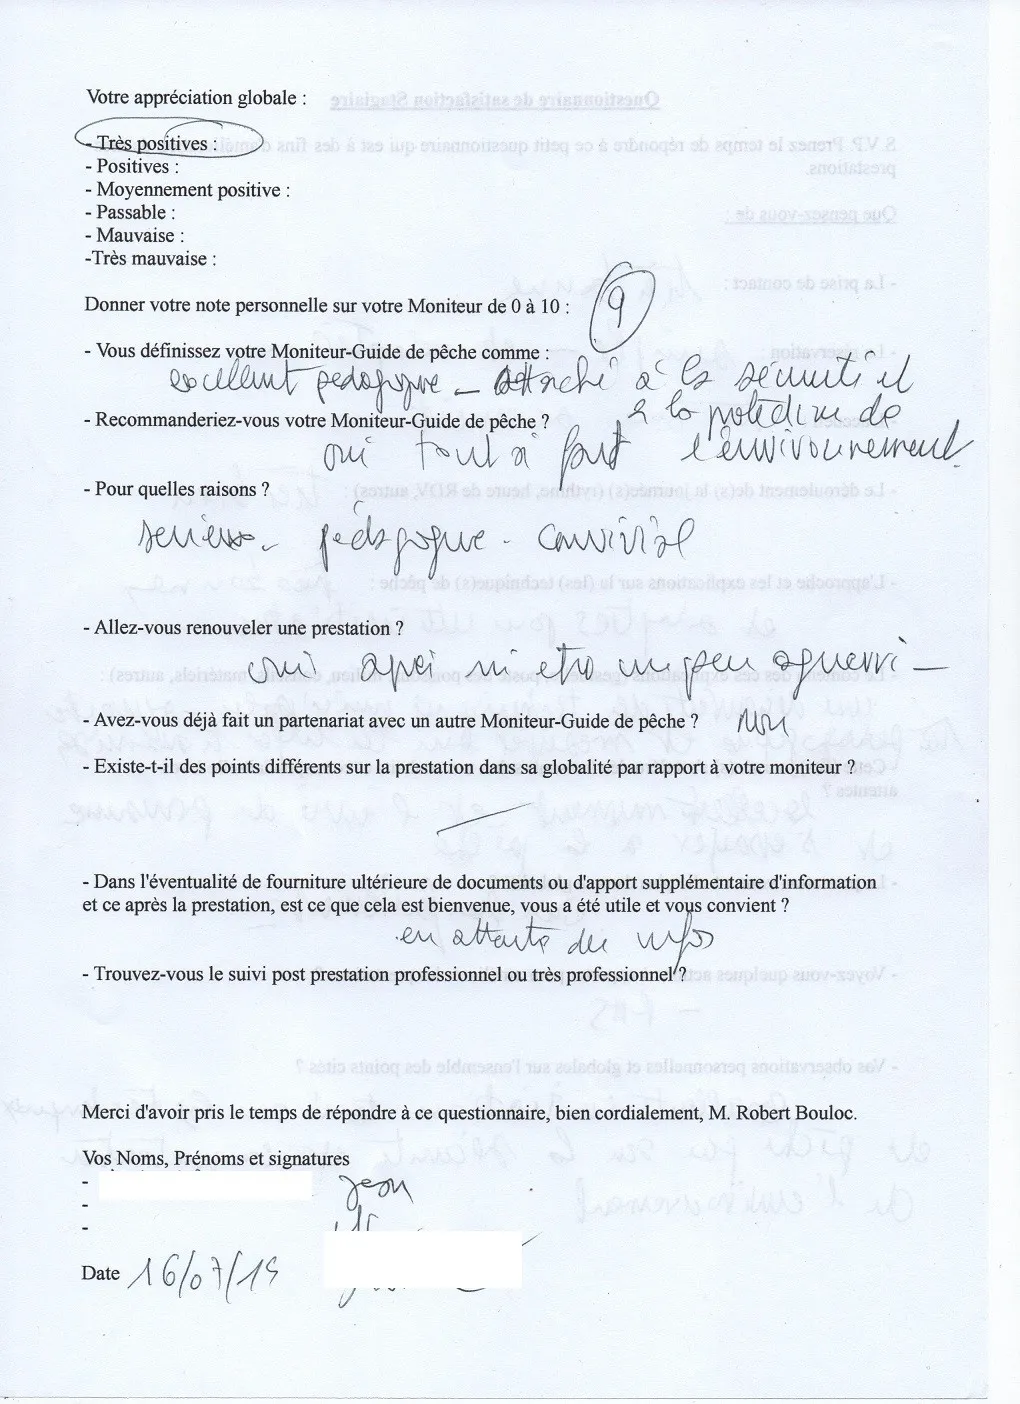 Votre appréciation globale :
- Très positives :
- Positives :
- Moyennement positive :
- Passable :
- Mauvaise :
-Très mauvaise :
Donner votre note personnelle sur votre Moniteur de 0 à 10 : 9
- Vous définissez votre Moniteur-Guide de pêche comme :
excellent pédagogue - attaché à la sécurité et
à la protection de
l'environnement
- Recommanderiez-vous votre Moniteur-Guide de pêche ?
oui tout à fait
- Pour quelles raisons ?
serieux - pédagogue - convivial
- Allez-vous renouveler une prestation ?
oui après un peu aguerri -
- Avez-vous déjà fait un partenariat avec un autre Moniteur-Guide de pêche ? non
- Existe-t-il des points différents sur la prestation dans sa globalité par rapport à votre moniteur ?
- Dans l'éventualité de fourniture ultérieure de documents ou d'apport supplémentaire d'information
et ce après la prestation, est ce que cela est bienvenue, vous a été utile et vous convient ?
en attente des infos
- Trouvez-vous le suivi post prestation professionnel ou très professionnel ?
Merci d'avoir pris le temps de répondre à ce questionnaire, bien cordialement, M. Robert Bouloc.
Vos Noms, Prénoms et signatures
-
Jean
-
-
Date 16/07/15